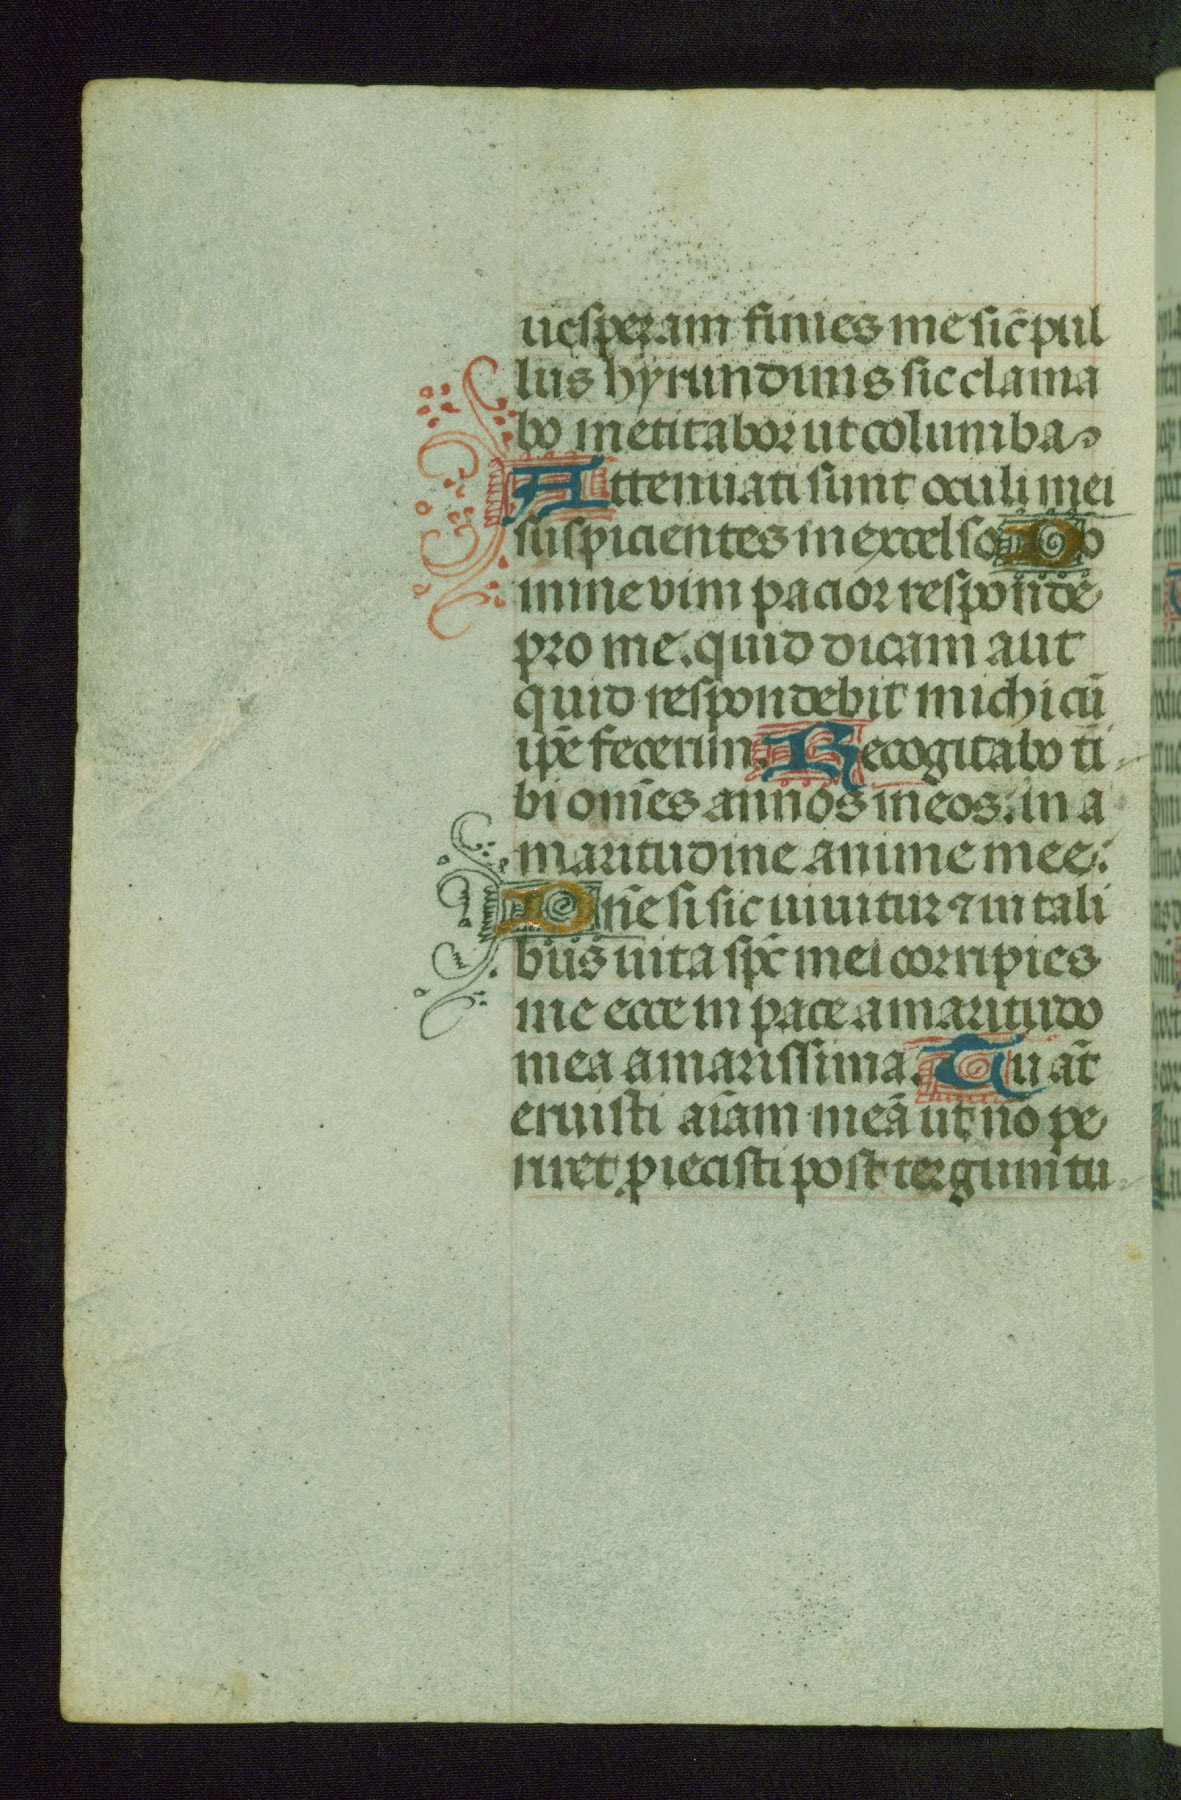 uesperam finies me sic̄ pul
lus hyrundinis sic clama
bo meditabor ut columba
Attenuati sunt oculi mei
suspicientes in excelso Do
mine vim pacior responde
pro me. quid dicam aut
quid respondebit michi cū
ip̄e fecerim. Recogitabo ti
bi om̄es annos meos. in a
maritudine anime mee.
Dn̄e si sic uiuitur ⁊ in tali
bus uita sp̄c mei corripies
me ecce in pace amaritudo
mea amarissima. Tu at̄
eruisti aīam meā ut nō pe
riret proiecisti post tergum tu